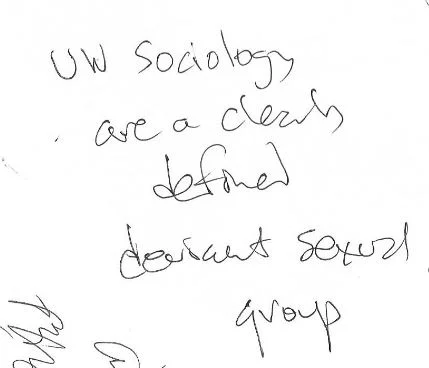 UW Sociology
are a clearly
defined
deviant sexual
group